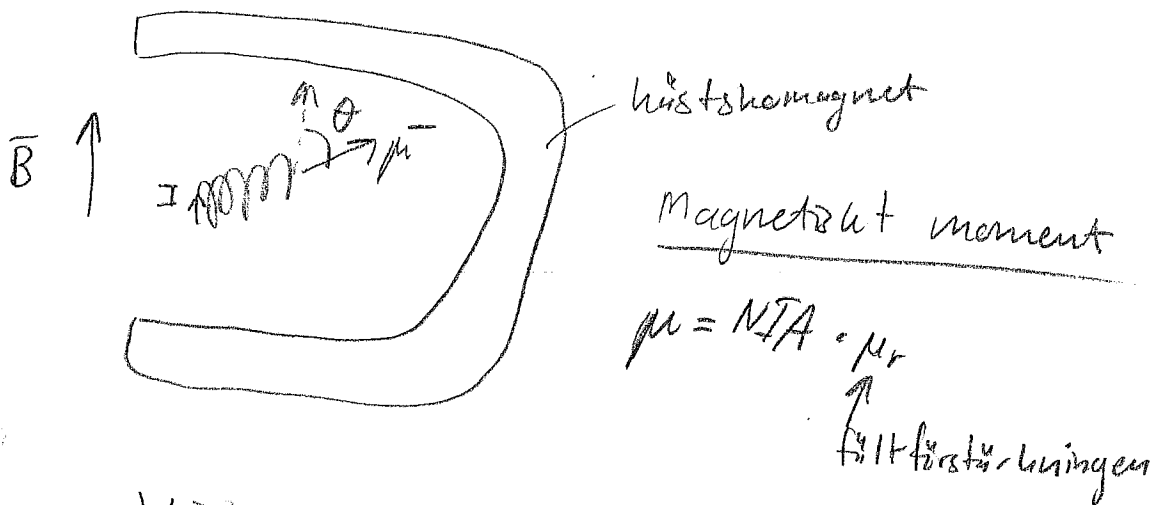 hästskomagnet
θ
B̅
μ̅
I
Magnetiskt moment
μ = NIA · μr
fältförstärkningen